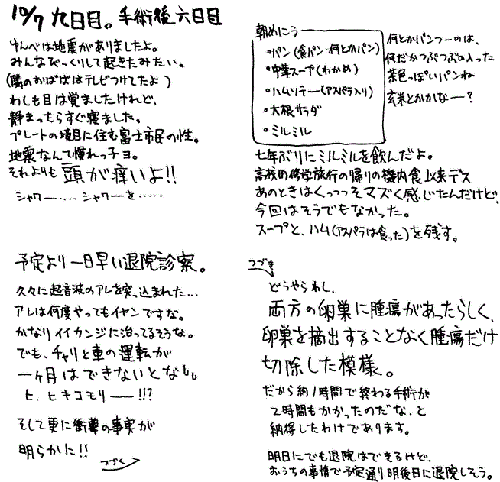 10/7 九日目。手術後六日目
ゆんべは地震がありましたよ。
みんなびっくりして起きたみたい。
(隣のおばばはテレビつけてたよ)
わしも目は覚ましたけれど、
静まったらすぐ寝ました。
プレートの境目に住む富士市民の性。
地震なんて慣れっ子ヨ。
それよりも頭が痒いよ!!
シャワー……シャワーを……
朝めにう
・パン(食パン・何とかパン)
・中華スープ(わかめ)
・ハムソテー(アスパラ入り)
・大根サラダ
・ミルミル
何とかパンつーのは、
何だかつぶつぶ入った
茶色っぽいパンね
玄米とかかな——?
七年ぶりにミルミルを飲んだよ。
高校の修学旅行の帰りの機内食以来デス
あのときはくっっっそマズく感じたんだけど、
今回はそうでもなかった。
スープと、ハム(アスパラは食った)を残す。
予定より一日早い退院診察。
久々に超音波のアレを突っ込まれた…
アレは何度やってもイヤンですな。
かなりイイカンジに治ってるそうな。
でも、チャリと車の運転が
一ヶ月はできないとなも。
ヒ、ヒキコモリ——!!?
そして更に衝撃の事実が
明らかに!!
つづく
つづき
どうやらわし、
両方の卵巣に腫瘍があったらしく、
卵巣を摘出することなく腫瘍だけ
切除した模様。
だから約1時間で終わる手術が
2時間もかかったのだな、と
納得したわけであります。
明日にでも退院はできるけど、
おうちの事情で予定通り明後日に退院しそう。